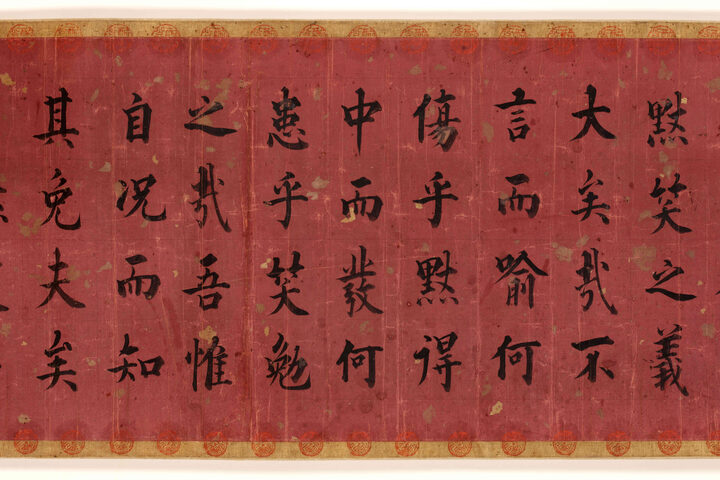 默笑之義
大矣哉不
言而喻何
傷乎默得
中而發何
患乎笑勉
之哉吾惟
自况而知
其免夫矣